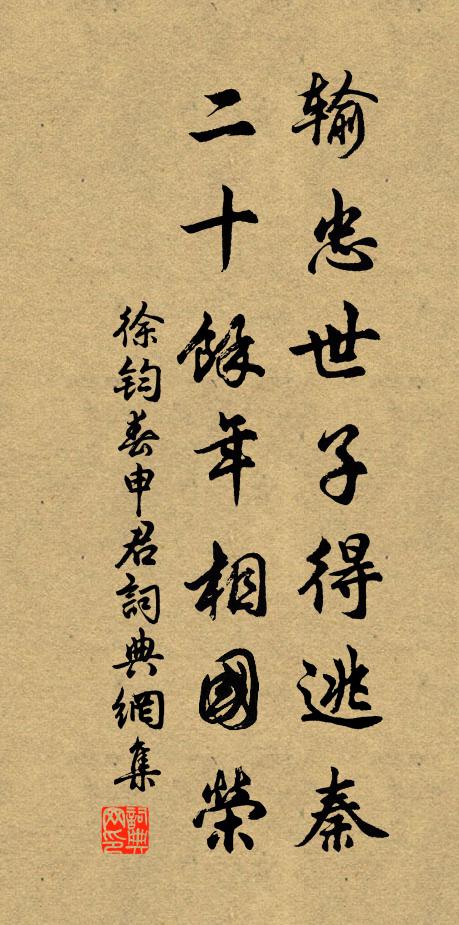 輸忠世子得逃秦
二十餘年相國榮
徐鈞春申君詞典網集
詞典网印